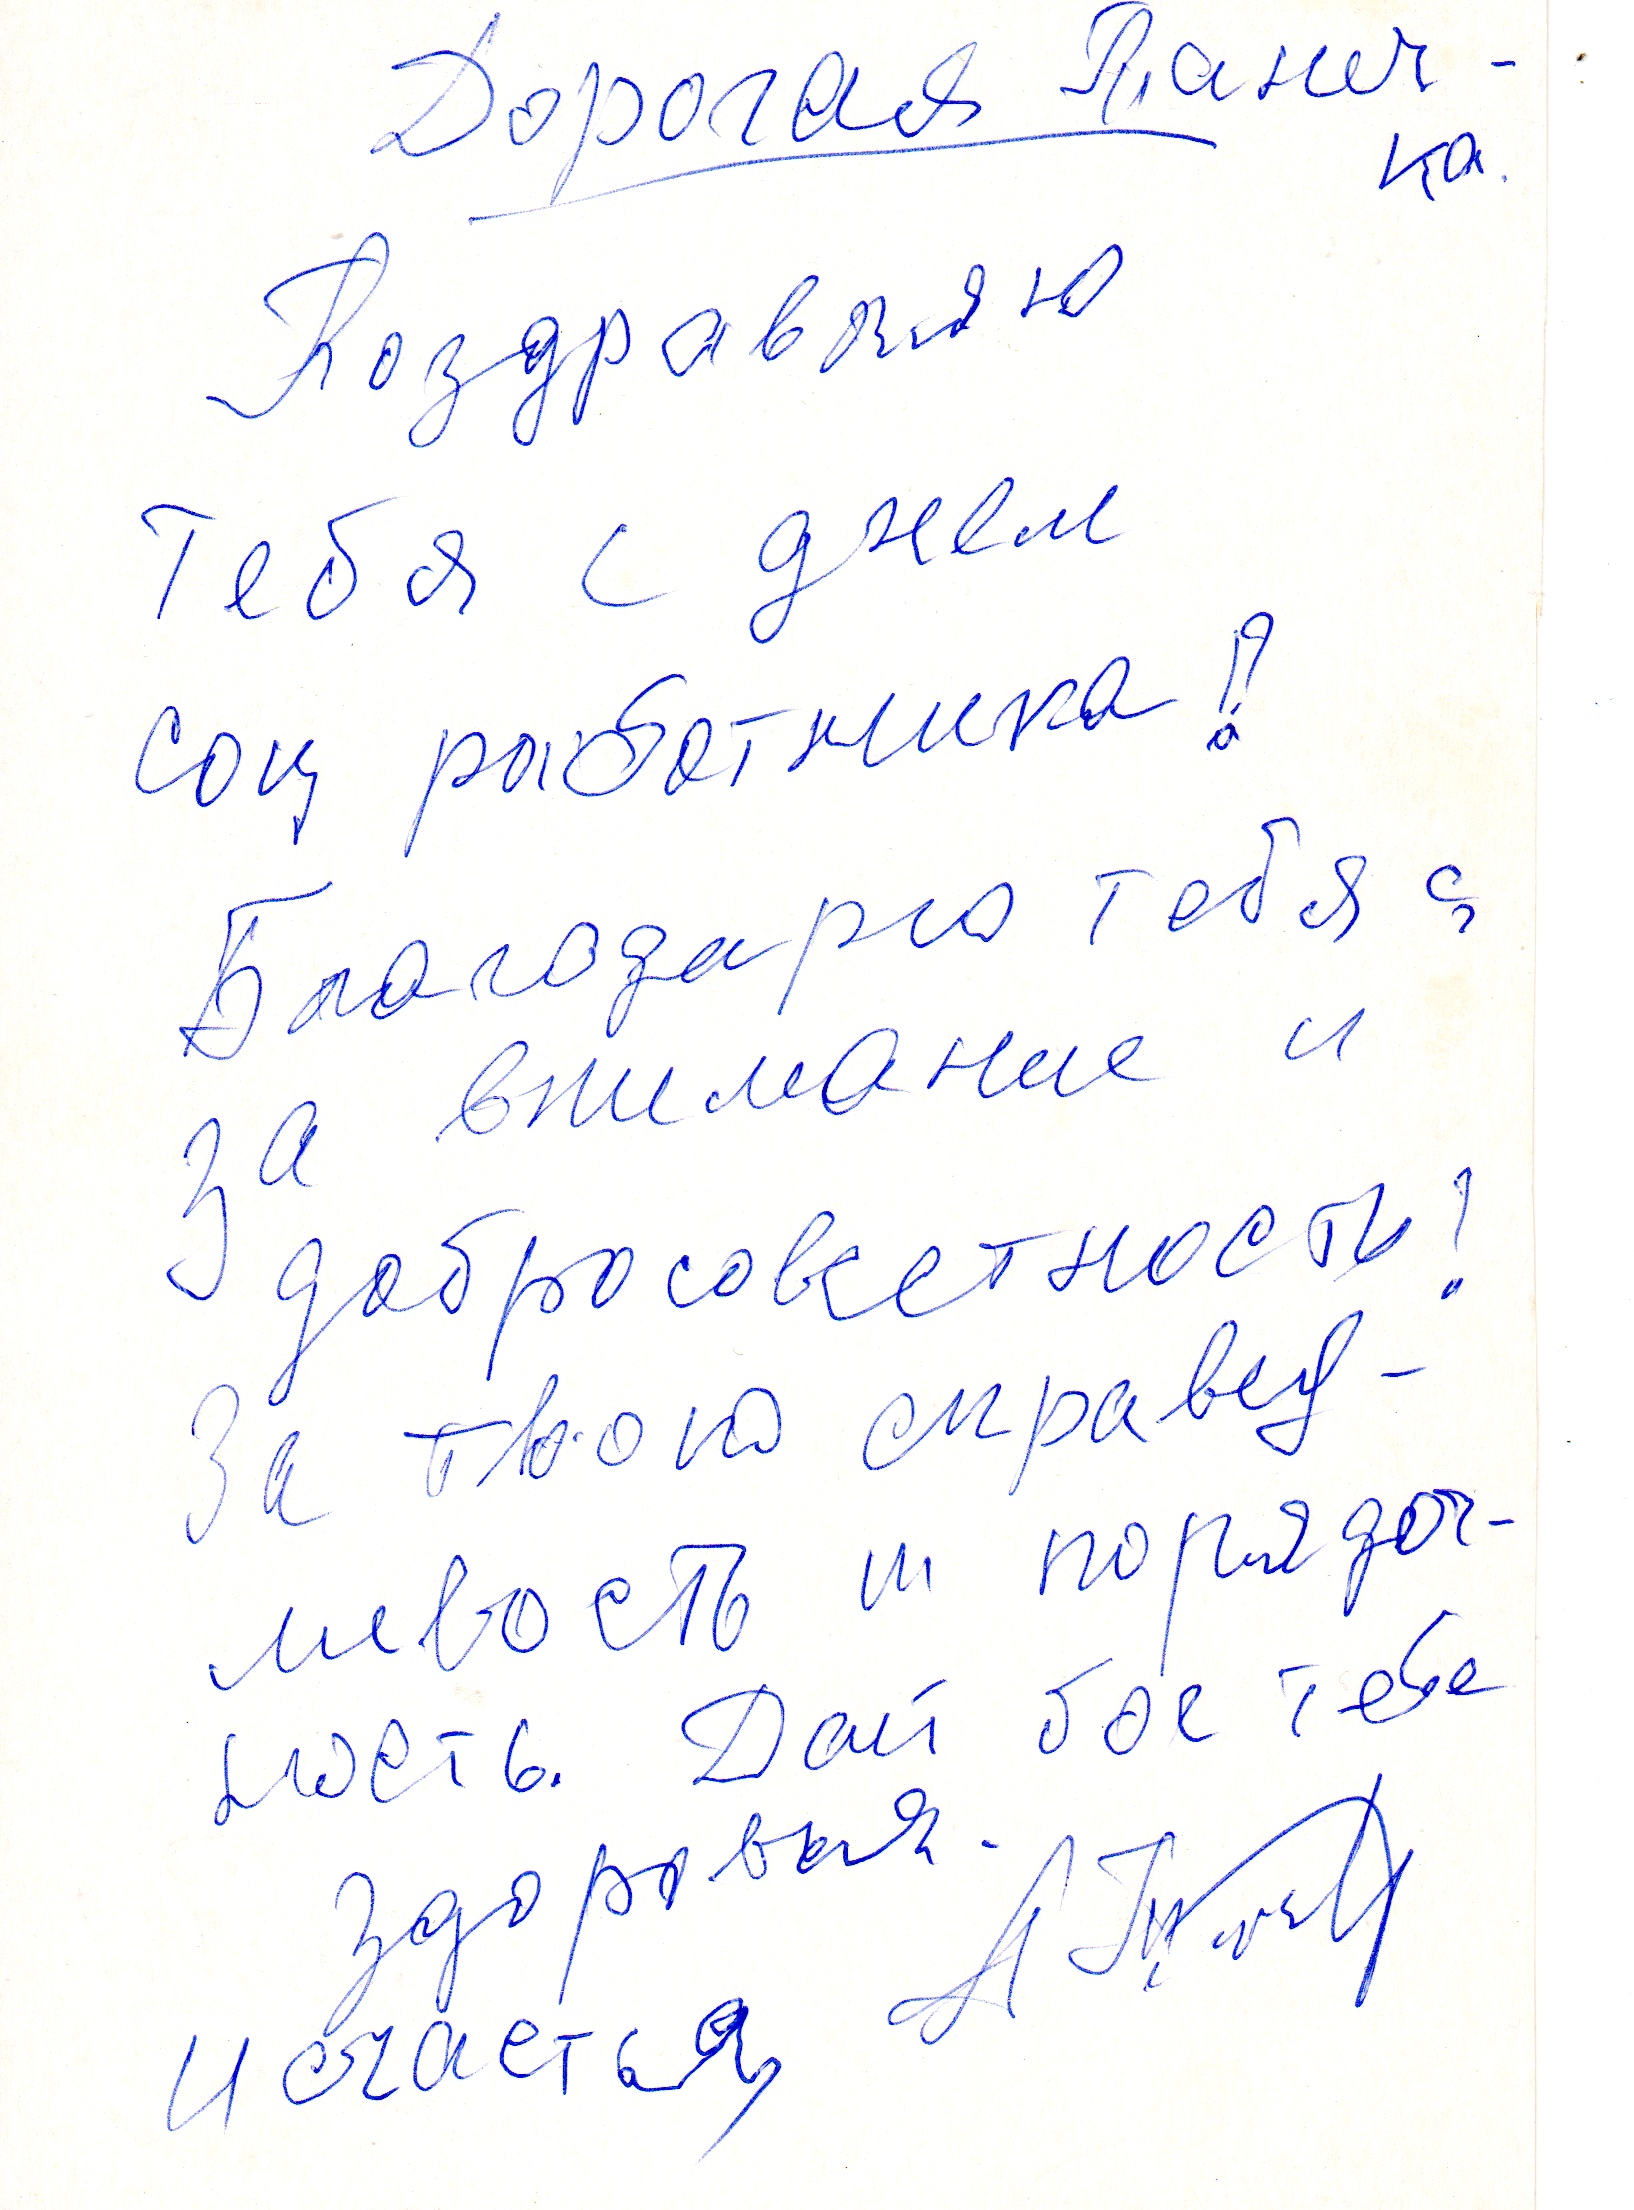 Дорогая Танеч-
ка.
Поздравляю
тебя с днем
соц работника!
Благодарю тебя
за внимание и
добросовестность!
За твою справед-
ливость и порядоч-
ность. Дай бог тебе
здоровья.
и счастья,